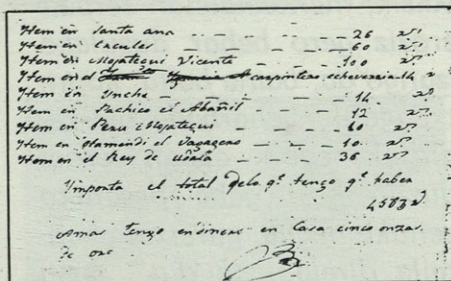 Ytem en Santa ana _ _ _ _ _ 26 rs
Ytem en Ercules _ _ _ _ 60 rs
Ytem en Mojategui Vicente _ _ _ 100 rs
Ytem en el carpintero echeverria 14 r
Ytem en Uncha _ _ _ 14 rs
Ytem en Pachico el Albañil _ _ 12 rs
Ytem en Peru Mojategui _ _ 60 rs
Ytem en Otamendi el _ _ 10 rs
Ytem en el Rey de _ _ _ 36 rs
Ymporta el total delo qe tengo qe haber
4583 rs
Amas Tengo en dinero en Casa cinco onzas
de oro